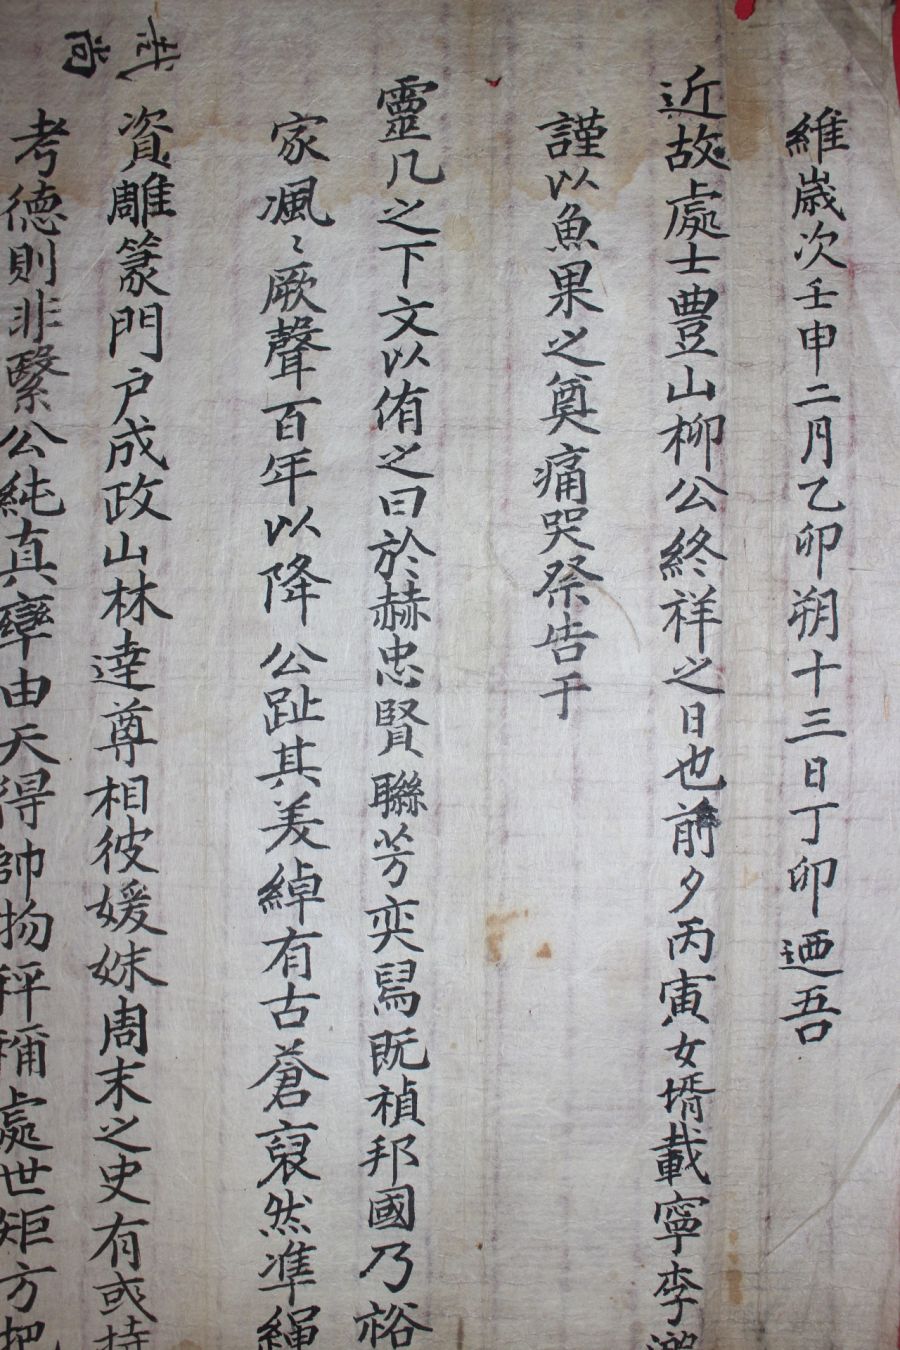 維歲次壬申二月乙卯朔十三日丁卯迺吾
近故處士豊山柳公終祥之日也前夕丙寅女壻載寧李
謹以魚果之奠痛哭祭告于
靈几之下文以侑之曰於赫忠賢聯芳奕舃既禎邦國乃裕
家渢〻厥聲百年以降公趾其美綽有古蒼裒然準繩
資雕篆門戶成政山林達尊相彼媛妹周末之史有或持
考德則非繄公純真孿由天得帥物秤稱處世矩方把